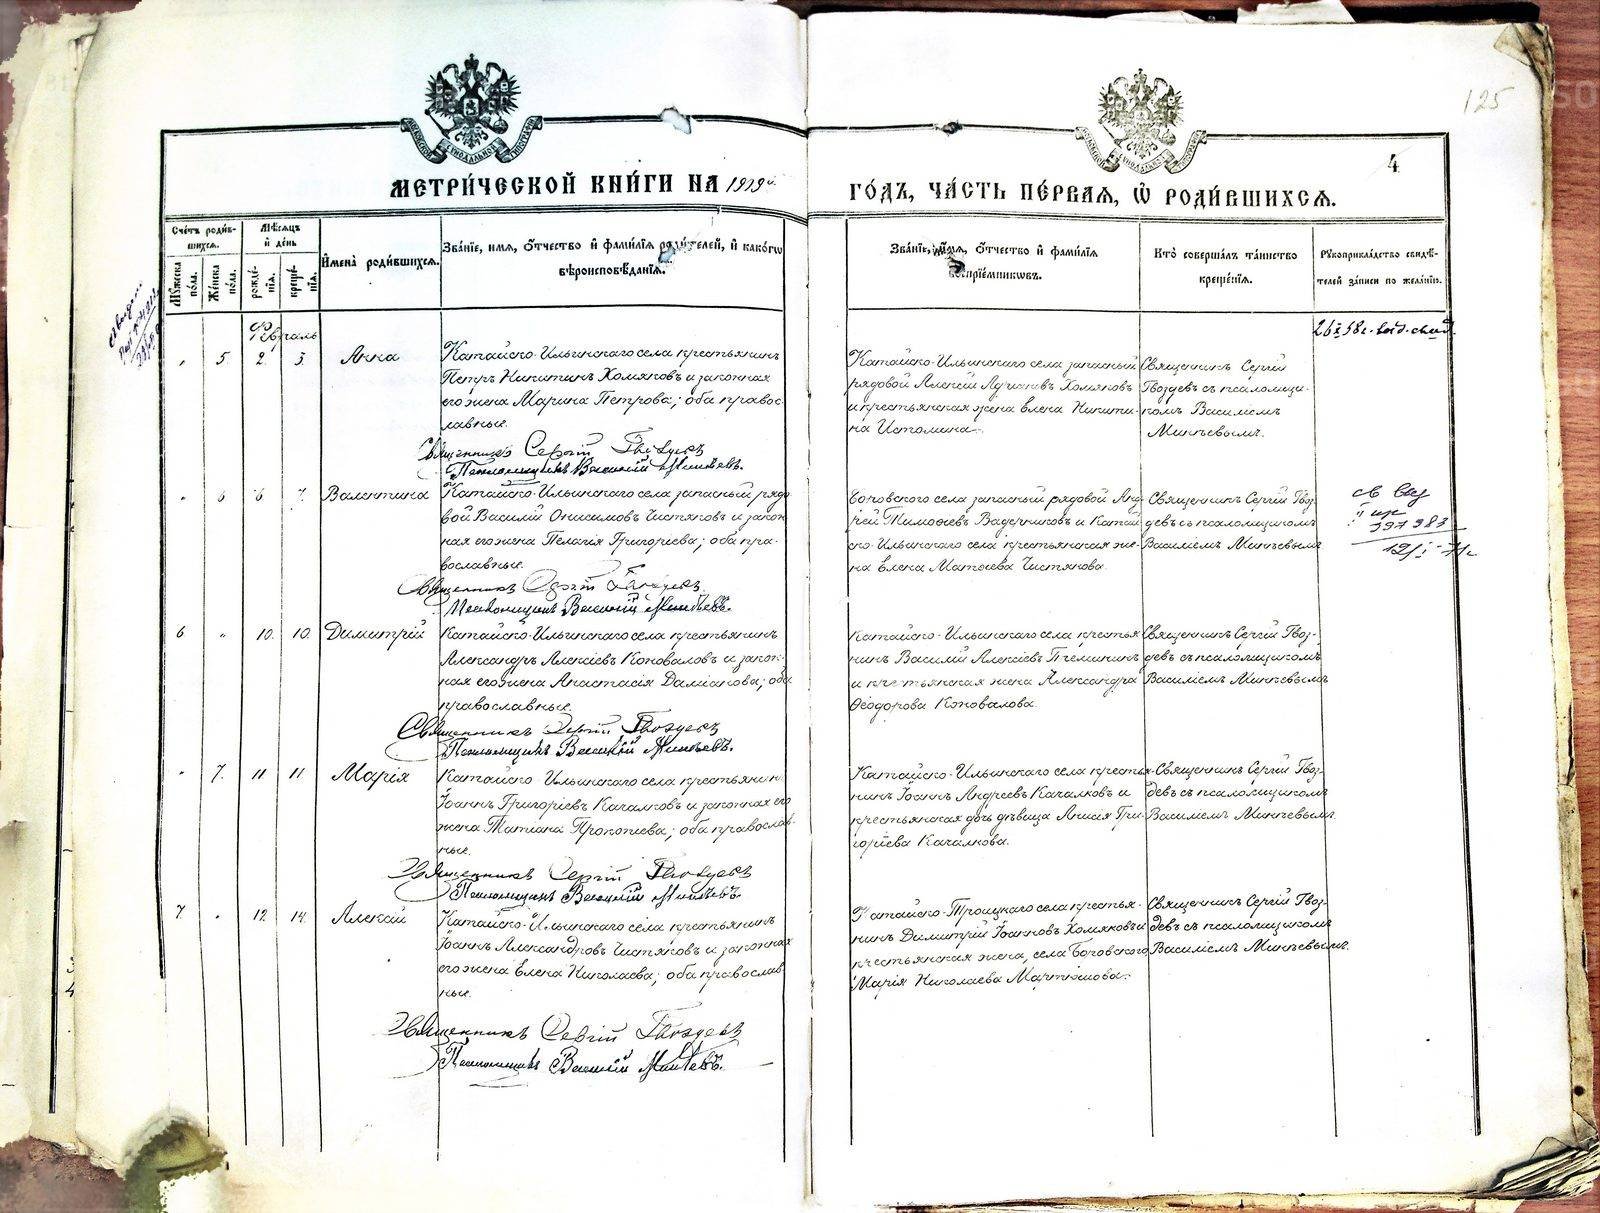 125
4
МЕТРИ́ЧЕСКОЙ КНИ́ГИ НА 1919й
ГО́ДЪ, ЧА́СТЬ ПЕ́РВАЯ, Ѿ РОДИ́ВШИХСЯ.
Сче́тъ роди́в-
шихся.
Му́жеска по́ла.
Же́нска по́ла.
Мѣ́сяцъ
и҆ де́нь
рожде́-
нїя.
креще́-
нїя.
И҆мена̀ роди́вшихся.
Зва́нїе, и҆мя, ѻ҆́тчество и҆ фами́лїя роди́телей, и҆ како́гѡ
вѣроисповѣ́данїя.
Зва́нїе, и҆́мя, ѻ҆́тчество и҆ фами́лїя
воспрїе́мниковъ.
Кто̀ соверша́лъ та́инство
креще́нїя.
Рꙋкоприкла́дство свидѣ́-
телей за́писи по жела́нїю.
Февраль
" 5. 2. 3. Анна
Катайско-Ильинскаго села крестьянинъ
Петръ Никитинъ Хомяковъ и законная
его жена Марина Петрова; оба правос-
лавные.
Священникъ Сергій Гвоздевъ
Псаломщикъ Василій Минѣевъ.
Катайско-Ильинскаго села запасный
рядовой Алексій Адриановъ Хомяковъ
и крестьянская жена Елена Никити-
на Истомина.
Священникъ Сергій
Гвоздевъ съ псаломщи-
комъ Василіемъ
Минѣевымъ.
" 6 6 7. Валентина
Катайско-Ильинскаго села запасный рядо
вой Василій Онисимовъ Чистяковъ и закон
ная его жена Пелагия Григоріева; оба пра-
вославные.
Священникъ Сергій Гвоздевъ
Псаломщикъ Василій Минѣевъ.
Боровского села запасный рядовой Анд-
рей Тимоѳеевъ Ведерниковъ и Катай
ско-Ильинскаго села крестьянская же-
на Елена Матѳеева Чистякова.
Священникъ Сергій Гвоз-
девъ съ псаломщикомъ
Василіемъ Минѣевымъ
397983
12/I-71г
6 " 10. 10. Димитрій
Катайско-Ильинскаго села крестьянинъ
Александръ Алексіевъ Коноваловъ и закон-
ная его жена Анастасія Даміанова; оба
православные.
Священникъ Сергій Гвоздевъ
Псаломщикъ Василій Минѣевъ.
Катайско-Ильинскаго села крестья
нинъ Василій Алексіевъ Пчелининъ
и крестьянская жена Александра
Ѳеодорова Коновалова.
Священникъ Сергій Гвоз-
девъ съ псаломщикомъ
Василіемъ Минѣевымъ
" 7. 11 11. Марія
Катайско-Ильинскаго села крестьянинъ
Іоаннъ Григоріевъ Качалковъ и законная его
жена Татіана Прокопіева; оба православ-
ные.
Священникъ Сергій Гвоздевъ
Псаломщикъ Василій Минѣевъ.
Катайско-Ильинскаго села крестья-
нинъ Іоаннъ Андреевъ Качалковъ и
крестьянская дочь дѣвица Анисія Гри-
горіева Качалкова.
Священникъ Сергій Гвоз-
девъ съ псаломщикомъ
Василіемъ Минѣевымъ
7 " 12 14. Алексій
Катайско-Ильинскаго села крестьянинъ
Іоаннъ Александровъ Чистяковъ и законная
его жена Елена Николаева; оба православ-
ные.
Священникъ Сергій Гвоздевъ
Псаломщикъ Василій Минѣевъ.
Катайско-Троицкаго села крестья-
нинъ Димитрій Іоанновъ Хомяковъ и
крестьянская жена, села Боровского
Марія Николаева Мартюшова.
Священникъ Сергій Гвоз-
девъ съ псаломщикомъ
Василіемъ Минѣевымъ.